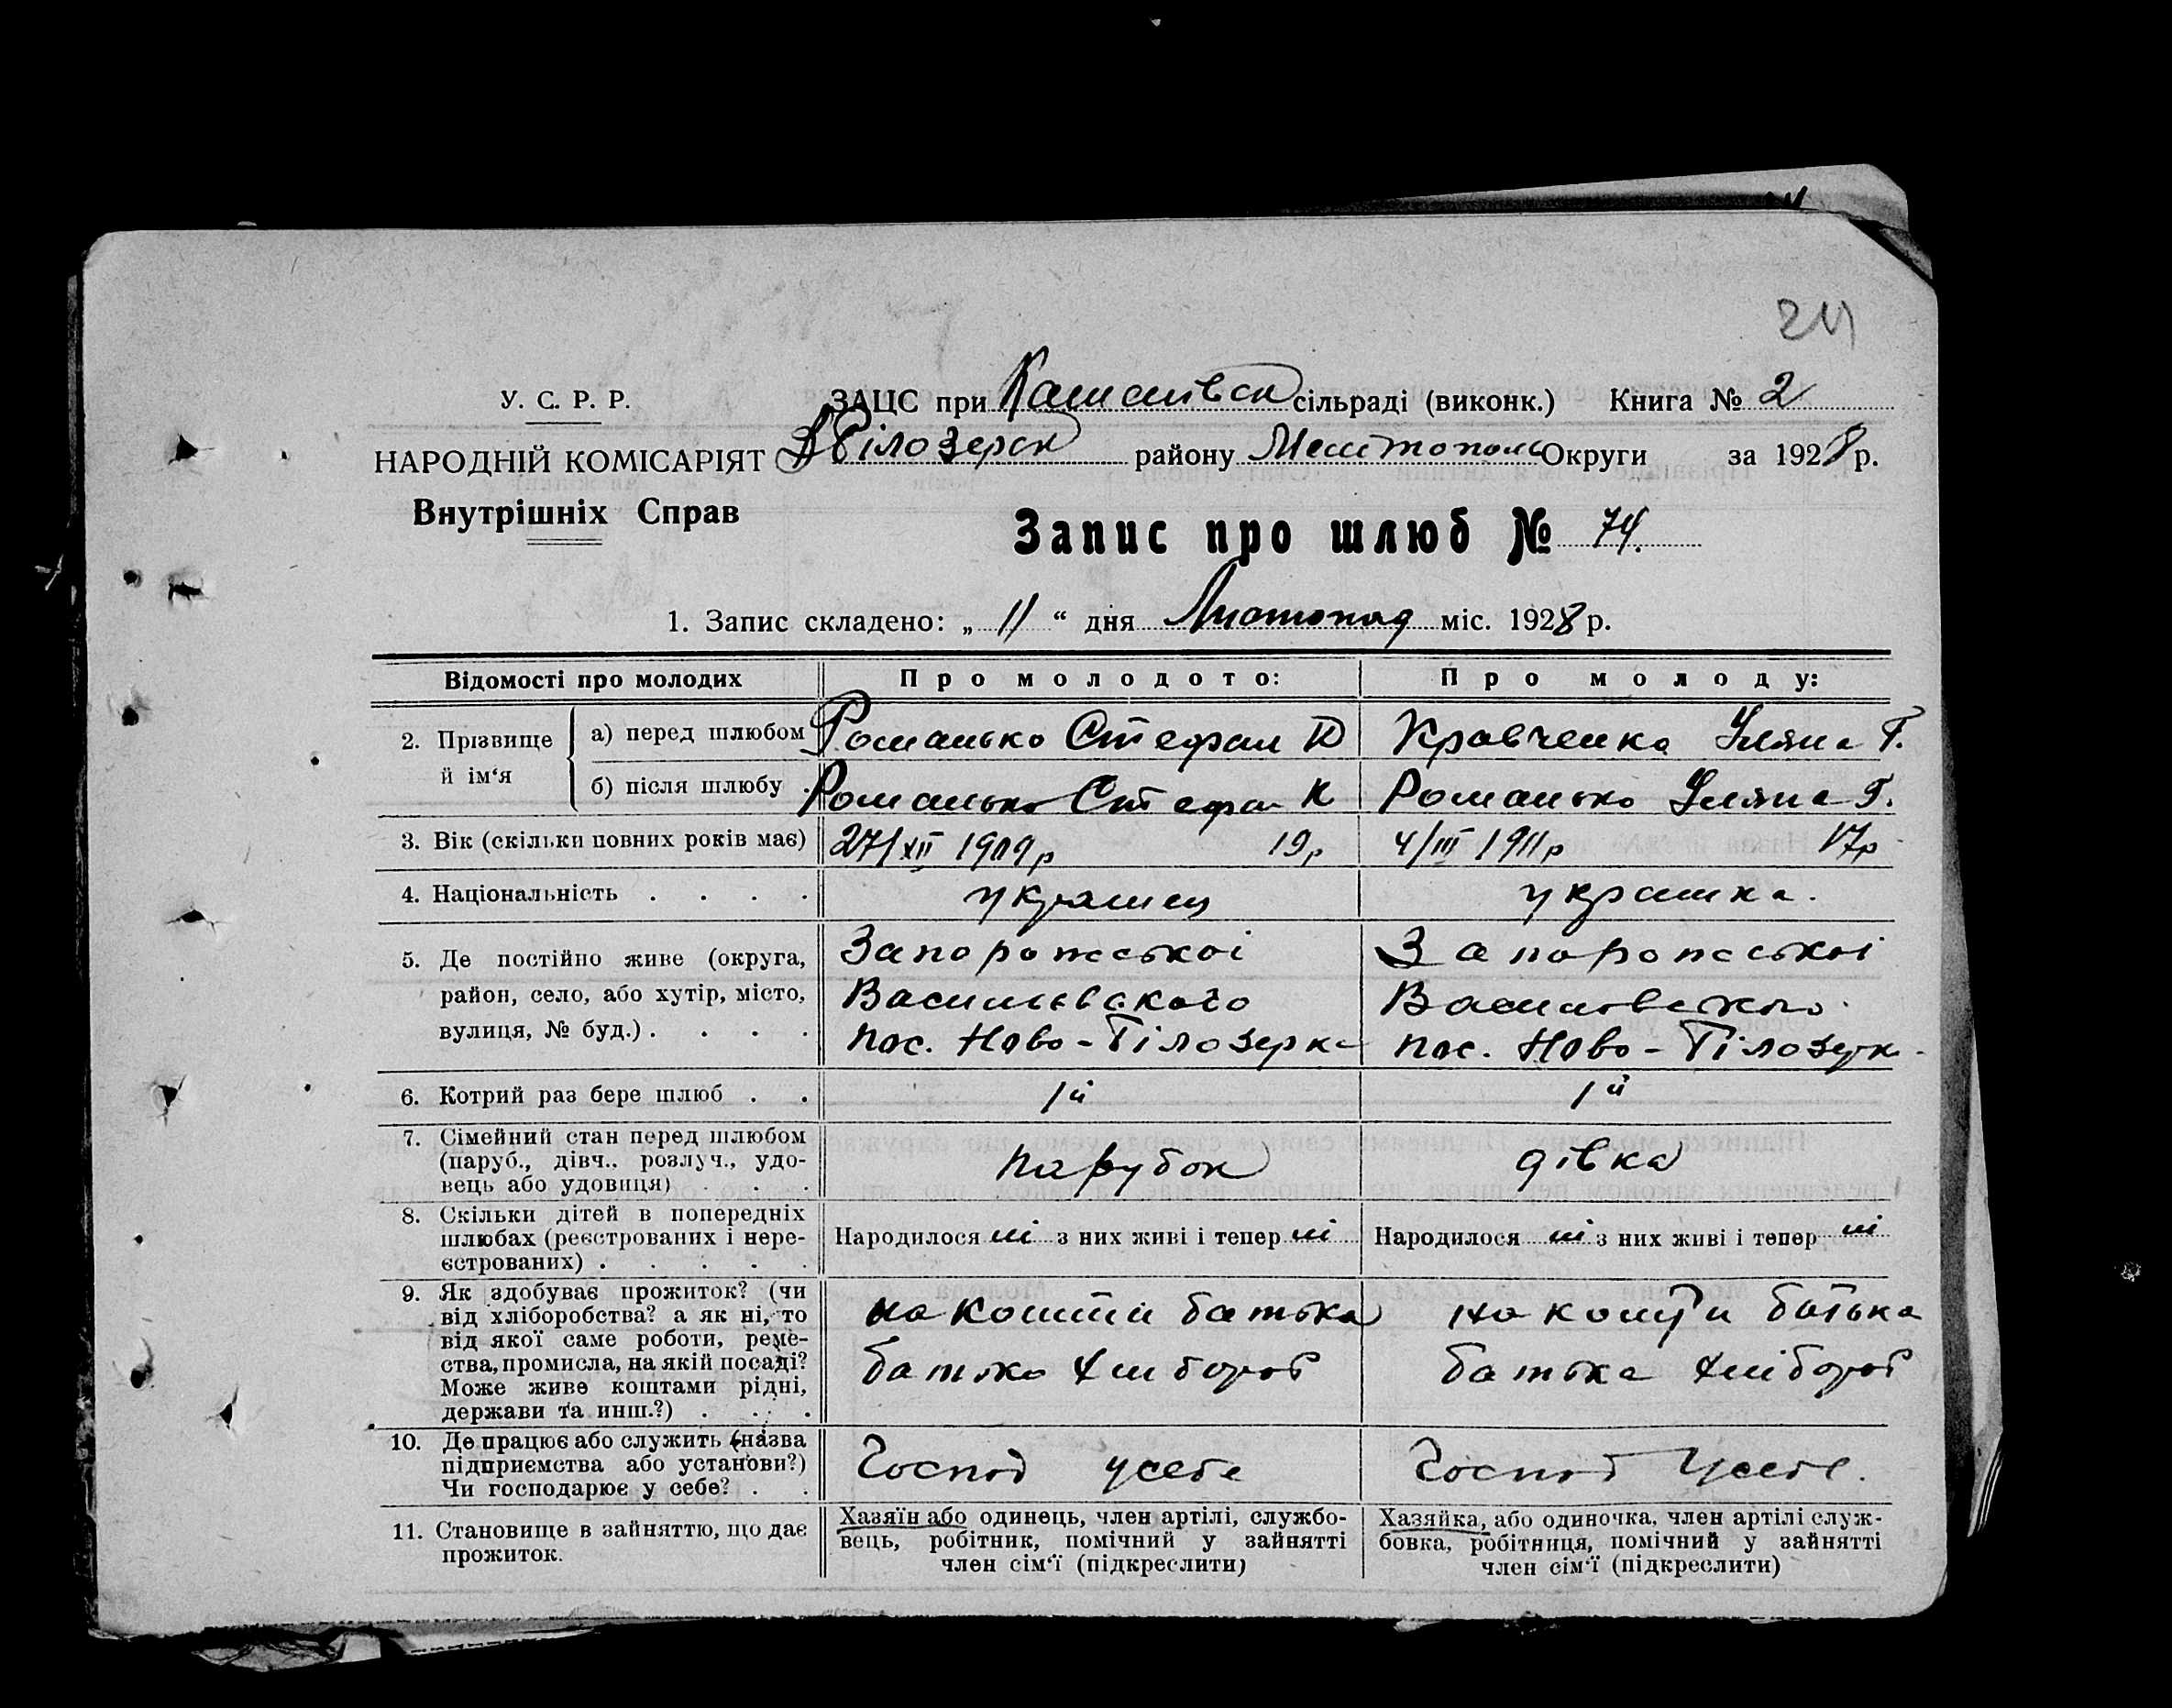 24
У. С. Р. Р.
НАРОДНІЙ КОМІСАРІЯТ
Внутрішніх Справ
ЗАЦС при сільраді (виконк.) Книга № 2
Білозерск району Округи за 1928 р.
Запис про шлюб № 74.
1. Запис складено: „ 11 “ дня Листопад міс. 1928 р.
Відомості про молодих
Про молодого:
Про молоду:
2. Прізвище й ім‘я
а) перед шлюбом
Романько Стефан К
Кравченко Уляна Г.
б) після шлюбу .
Романько Стефан К
Романько Уляна Г.
3. Вік (скільки повних років має)
27/XII 1909р 19р
4/III 1911р 17р
4. Національність . . . .
українец
украинка.
5. Де постійно живе (округа,
район, село, або хутір, місто,
вулиця, № буд.) . . . .
Запорожської
Васильевского
пос. Ново-Білозерка
Запорожської
Васильевского
пос. Ново-Білозерк
6. Котрий раз бере шлюб . .
1й
1й
7. Сімейний стан перед шлюбом
(паруб., дівч., розлуч., удо-
вець або удовиця) . . .
парубок
дівка
8. Скільки дітей в попередніх
шлюбах (реєстрованих і нере-
єстрованих) . . . . .
Народилося ні з них живі і тепер ні
Народилося ні з них живі і тепер ні
9. Як здобуває прожиток? (чи
від хліборобства? а як ні, то
від якої саме роботи, реме-
ства, промисла, на якій посаді?
Може живе коштами рідні,
держави та инш.?) . . .
на кошти батька
батько хлібороб
на кошти батька
батька хлібороб
10. Де працює або служить (назва
підприємства або установи?)
Чи господарює у себе? . .
Господ усебе
Господ усебе.
11. Становище в зайняттю, що дає
прожиток.
Хазяїн або одинець, член артілі, службо-
вець, робітник, помічний у зайнятті
член сім‘ї (підкреслити)
Хазяйка, або одиночка, член артілі служ-
бовка, робітниця, помічний у зайнятті
член сім‘ї (підкреслити)